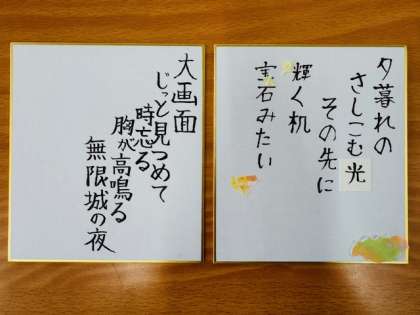 夕暮れの
さしこむ光
その先に
輝く机
宝石みたい
大画面
じっと見つめて
時忘る
胸が高鳴る
無限城の夜